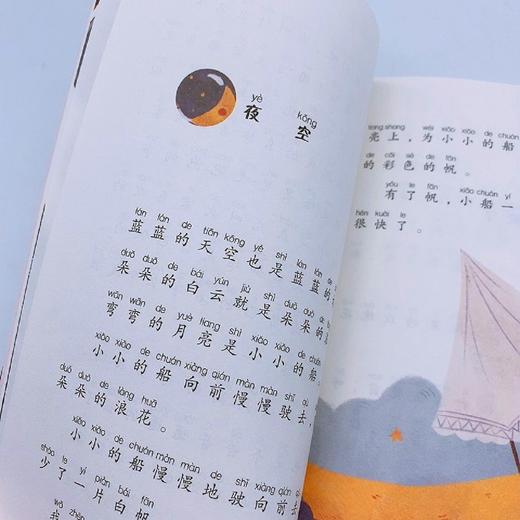 yè kōng
夜空
lán lán de tiān kōng yě shì lán lán de
蓝蓝的天空也是蓝蓝的
duǒ duǒ de bái yún jiù shì duǒ duǒ de
朵朵的白云就是朵朵的
wān wān de yuè liang shì xiǎo xiǎo de chuán
弯弯的月亮是小小的船
xiǎo xiǎo de chuán xiàng qián màn màn shǐ qù
小小的船向前慢慢驶去,
duǒ duǒ de làng huā
朵朵的浪花。
xiǎo xiǎo de chuán màn màn de shǐ xiàng qián
小小的船慢慢地驶向前
shǎo le yí piàn bái fān
少了一片白帆
wǒ
我
liang shang wèi xiǎo xiǎo de chuán
亮上,为小小的船
de cǎi sè de fān
的彩色的帆。
yǒu le fān xiǎo chuán yì
有了帆,小船一
hěn kuài le
很快了。